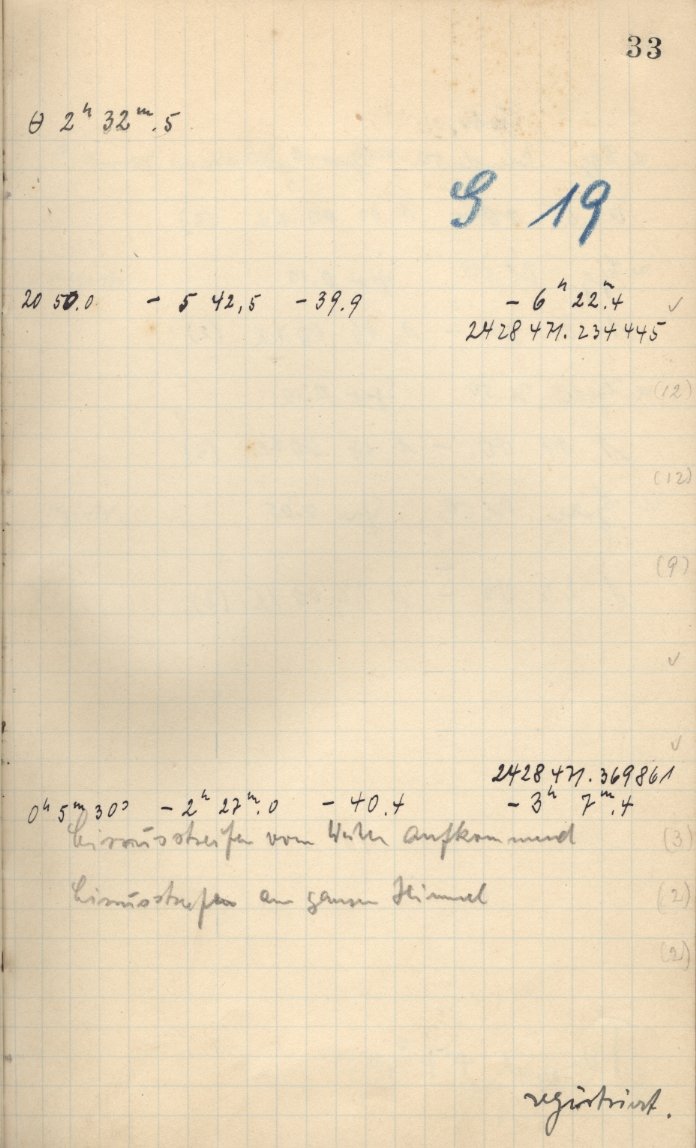 33
θ 2ʰ 32ᵐ.5
S 19
20 50.0 - 5 42,5 -39.9 - 6ʰ 22ᵐ.4 ✓
2428 471. 234 445
(12)
(12)
(9)
✓
✓
2428 471. 369861
0ʰ 5ᵐ 30ˢ - 2ʰ 27ᵐ.0 - 40.4 - 3ʰ 7ᵐ.4
Cirrusstreifen vom Westen aufkommend (3)
Cirrusstreifen am ganzen Himmel (2)
(2)
registriert.